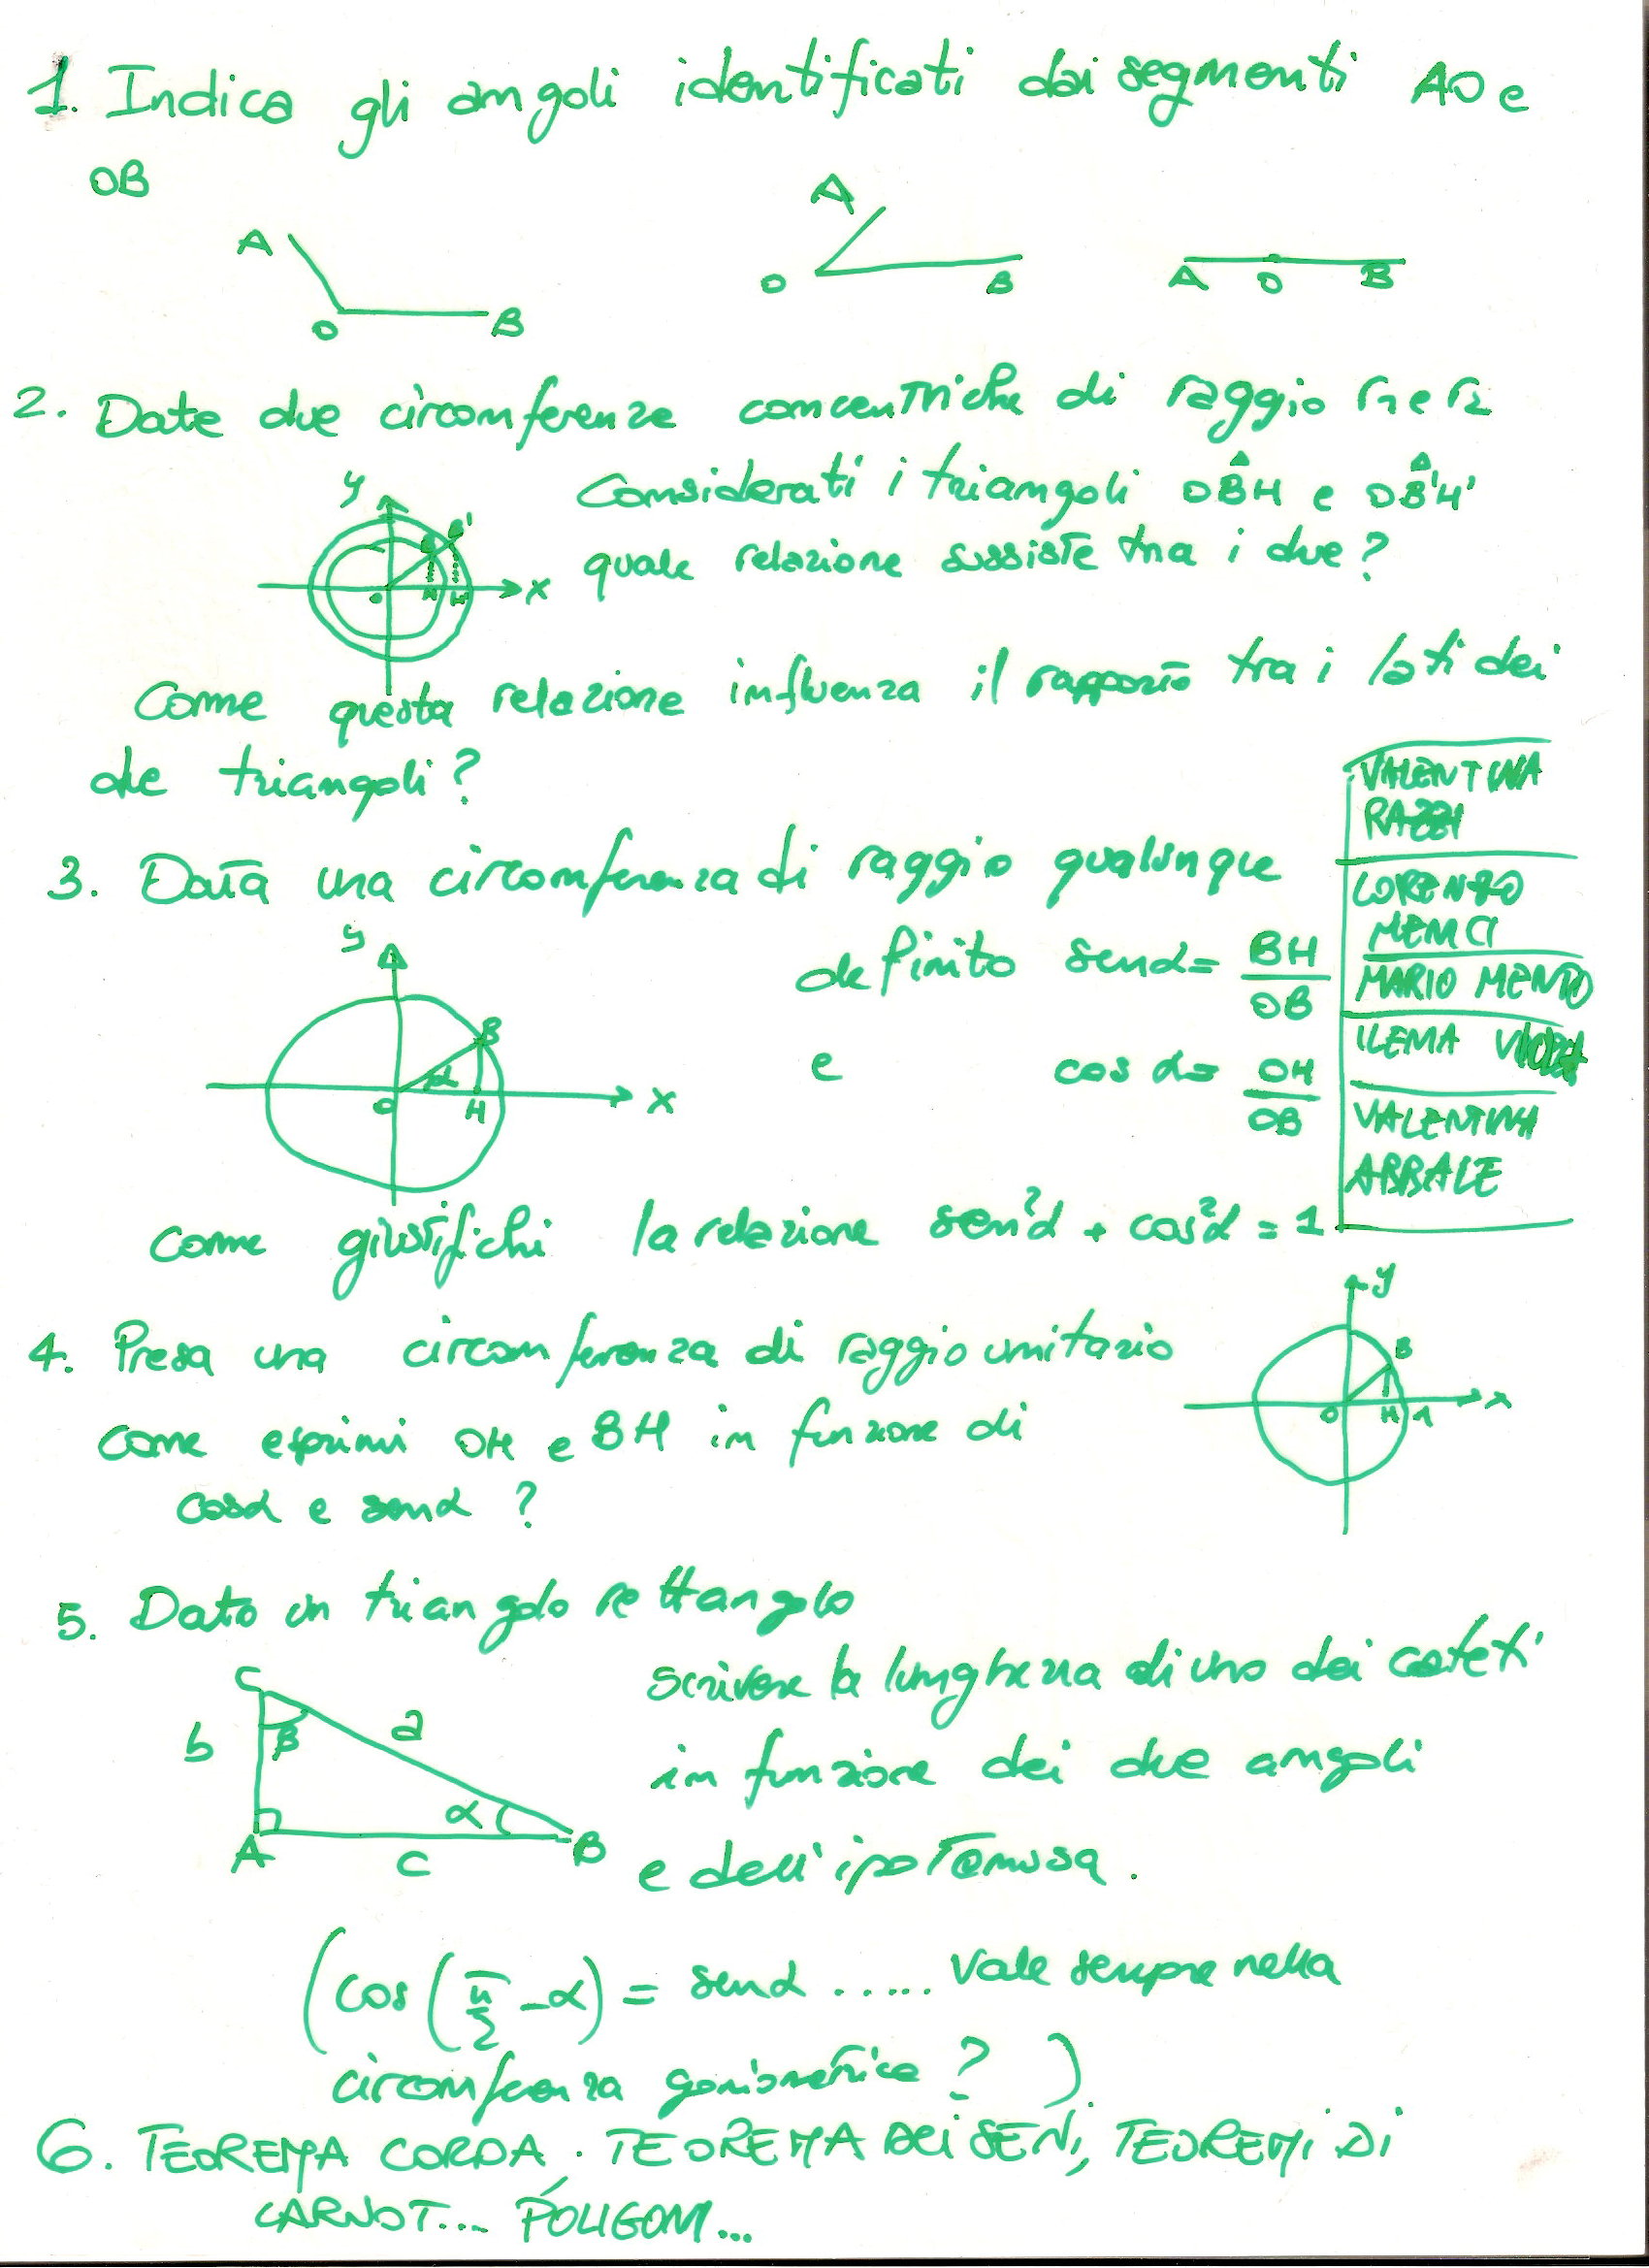 1. Indica gli angoli identificati dai segmenti AO e
OB
A O B
A O B
A O B
2. Date due circonferenze concentriche di raggio r1 e r2
y B B' O H H' x
Considerati i triangoli OBH e OB'H'
quale relazione sussiste tra i due?
Come questa relazione influenza il rapporto tra i lati dei
due triangoli?
3. Data una circonferenza di raggio qualunque
y B α O H x
definito senα = BH/OB
e cos α = OH/OB
VALENTINA
LORENZO
MENCI
MARIO
ILENA
VALENTINA
ABBALE
Come giustifichi la relazione sen²α + cos²α = 1
4. Presa una circonferenza di raggio unitario
y B O H 1 x
come esprimi OH e BH in funzione di
cosα e senα ?
5. Dato un triangolo rettangolo
C b β a α A c B
scrivere la lunghezza di uno dei cateti
in funzione dei due angoli
e dell'ipotenusa.
(cos(π/2 - α) = senα ...... vale sempre nella
circonferenza goniometrica ? )
6. TEOREMA CORDA. TEOREMA DEI SENI, TEOREMI DI
CARNOT... POLIGONI...